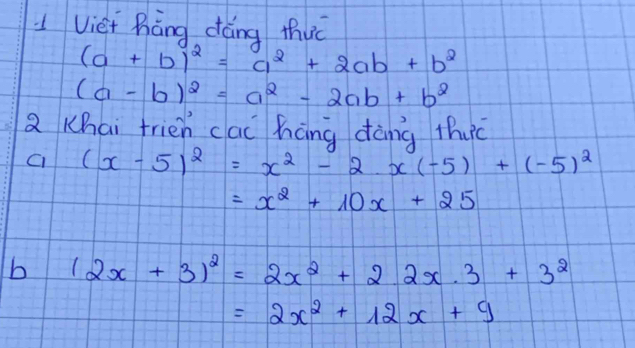 1 Viết hằng đẳng thức
(a + b)² = a² + 2ab + b²
(a - b)² = a² - 2ab + b²
2 Khai triển các hằng đẳng thức
a (x - 5)² = x² - 2.x(-5) + (-5)²
= x² + 10x + 25
b (2x + 3)² = 2x² + 2.2x.3 + 3²
= 2x² + 12x + 9